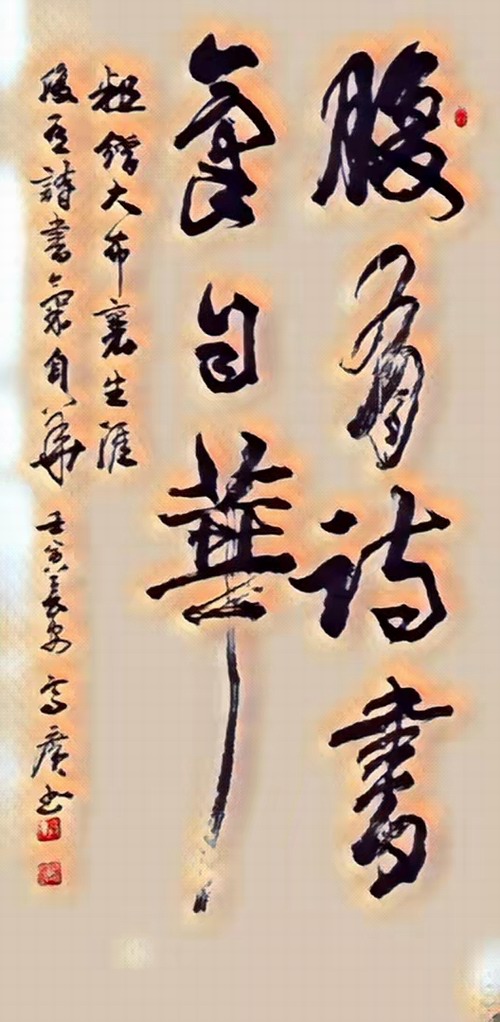 腹有诗書
氣自華
粗繒大布裹生涯
腹有詩書氣自華 壬寅長安 高廣书